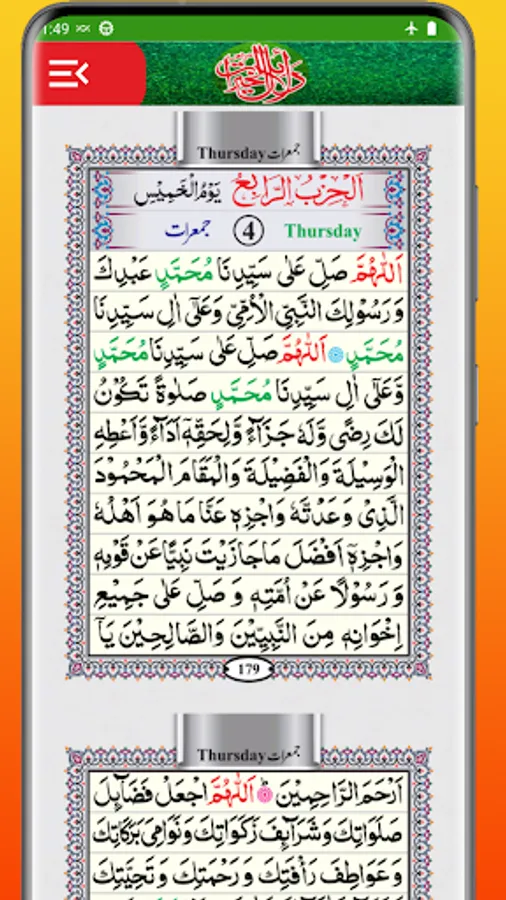 1:49
دلائل الخیرات
Thursday جمعرات
اَلْحِزْبُ الرَّابِعُ يَوْمُ الْخَمِيْسِ
جمعرات 4 Thursday
اَللّٰهُمَّ صَلِّ عَلٰى سَيِّدِنَا مُحَمَّدٍ عَبْدِكَ
وَرَسُوْلِكَ النَّبِيِّ الْاُمِّيِّ وَعَلٰٓى اٰلِ سَيِّدِنَا
مُحَمَّدٍ ۞ اَللّٰهُمَّ صَلِّ عَلٰى سَيِّدِنَا مُحَمَّدٍ
وَّعَلٰٓى اٰلِ سَيِّدِنَا مُحَمَّدٍ صَلٰوةً تَكُوْنُ
لَكَ رِضًى وَّلَهٗ جَزَآءً وَّلِحَقِّهٖٓ اَدَآءً وَّاَعْطِهِ
الْوَسِيْلَةَ وَالْفَضِيْلَةَ وَالْمَقَامَ الْمَحْمُوْدَ
الَّذِيْ وَعَدْتَّهٗ وَاجْزِهٖ عَنَّا مَا هُوَ اَهْلُهٗ
وَاجْزِهٖٓ اَفْضَلَ مَا جَازَيْتَ نَبِيًّا عَنْ قَوْمِهٖ
وَرَسُوْلًا عَنْ اُمَّتِهٖ وَ صَلِّ عَلٰى جَمِيْعِ
اِخْوَانِهٖ مِنَ النَّبِيِّيْنَ وَالصَّالِحِيْنَ يَآ
179
Thursday جمعرات
اَرْحَمَ الرَّاحِمِيْنَ ۞ اَللّٰهُمَّ اجْعَلْ فَضَآئِلَ
صَلَوَاتِكَ وَشَرَآئِفَ زَكَوَاتِكَ وَنَوَامِيَ بَرَكَاتِكَ
وَعَوَاطِفَ رَأْفَتِكَ وَرَحْمَتِكَ وَتَحِيَّتِكَ